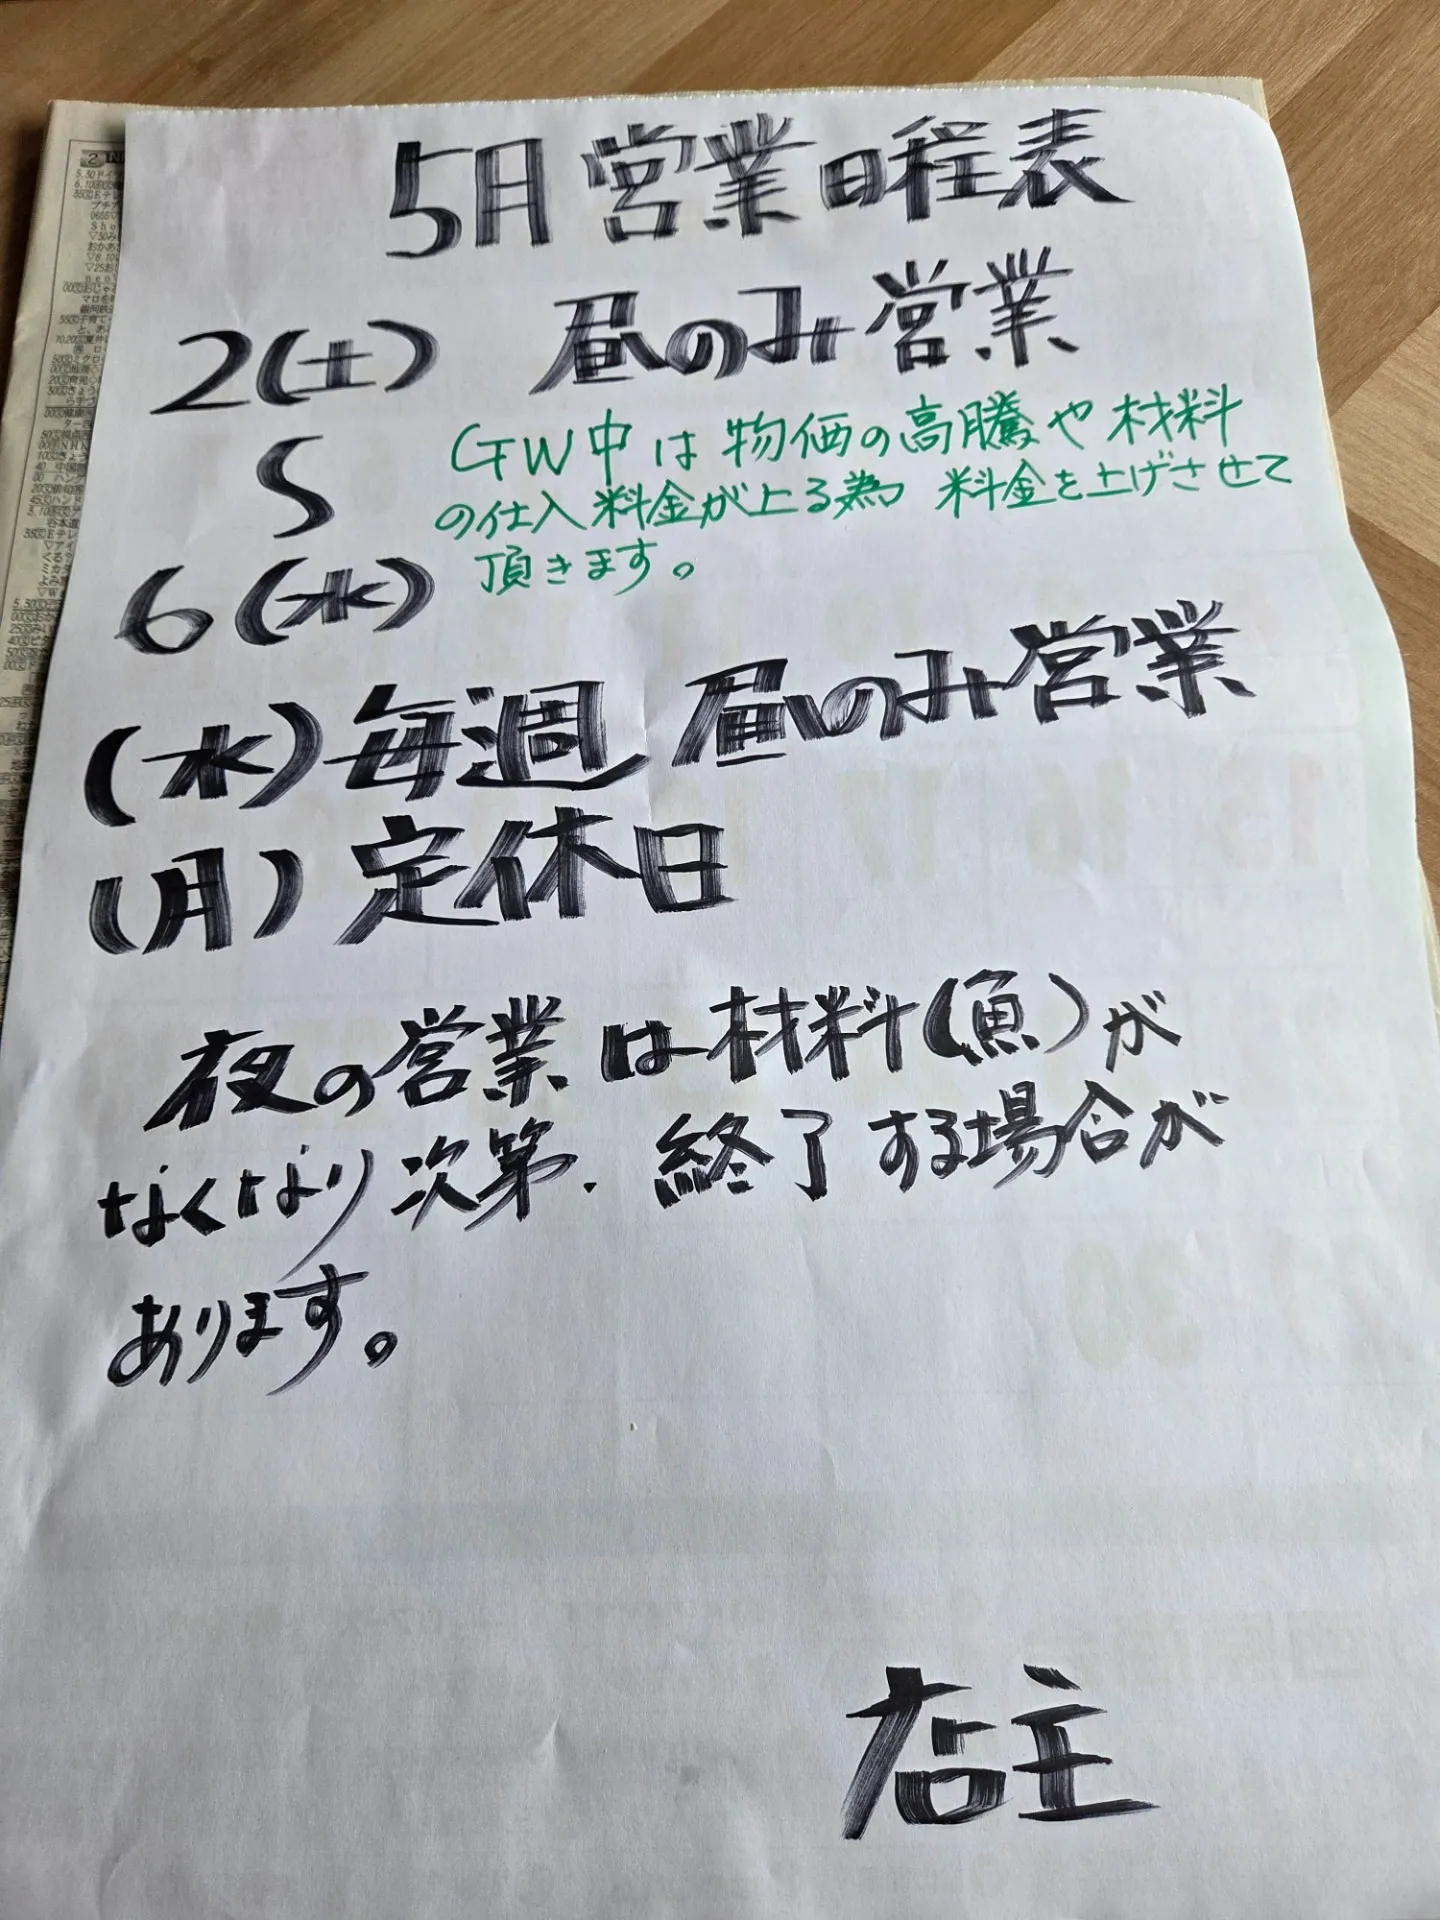 5月営業日程表
2(土) 昼のみ営業
〜
GW中は物価の高騰や材料
の仕入料金が上る為 料金を上げさせて
頂きます。
6(水)
(水)毎週 昼のみ営業
(月)定休日
夜の営業は材料(魚)が
なくなり次第、終了する場合が
あります。
店主